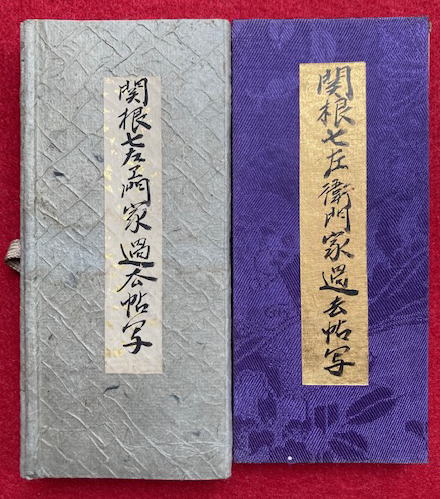 関根七左衛門家過去帖写
関根七左エ門家過去帖写